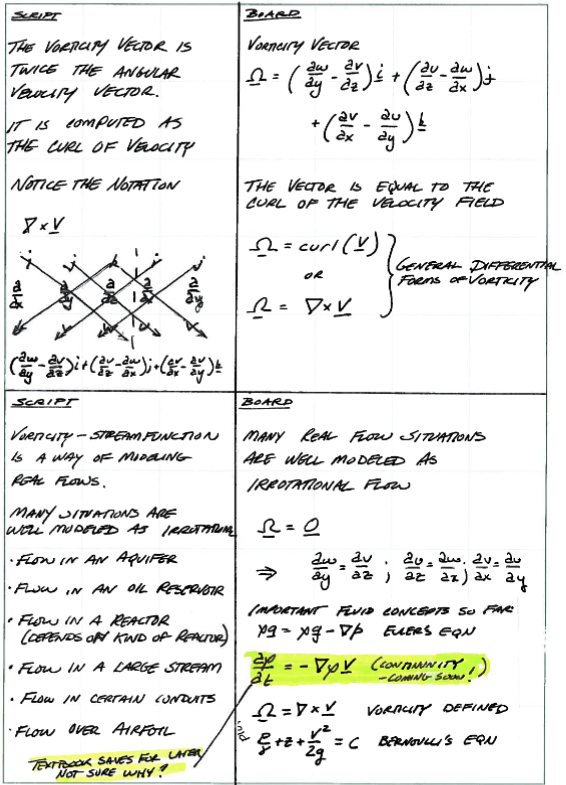 SCRIPT
THE VORTICITY VECTOR IS
TWICE THE ANGULAR
VELOCITY VECTOR.
IT IS COMPUTED AS
THE CURL OF VELOCITY
NOTICE THE NOTATION
∇ × V
i j k i j
∂/∂x ∂/∂y ∂/∂z ∂/∂x ∂/∂y
u v w u v
(∂w/∂y - ∂v/∂z)i + (∂u/∂z - ∂w/∂x)j + (∂v/∂x - ∂u/∂y)k
BOARD
VORTICITY VECTOR
Ω = (∂w/∂y - ∂v/∂z)i + (∂u/∂z - ∂w/∂x)j
+ (∂v/∂x - ∂u/∂y)k
THE VECTOR IS EQUAL TO THE
CURL OF THE VELOCITY FIELD
Ω = curl(V)
OR
Ω = ∇ × V
GENERAL DIFFERENTIAL
FORMS OF VORTICITY
SCRIPT
VORTICITY - STREAMFUNCTION
IS A WAY OF MODELING
REAL FLOWS.
MANY SITUATIONS ARE
WELL MODELED AS IRROTATIONAL
· FLOW IN AN AQUIFER
· FLOW IN AN OIL RESERVOIR
· FLOW IN A REACTOR
(DEPENDS ON KIND OF REACTOR)
· FLOW IN A LARGE STREAM
· FLOW IN CERTAIN CONDUITS
· FLOW OVER AIRFOIL
TEXTBOOK SAVES FOR LATER
NOT SURE WHY?
BOARD
MANY REAL FLOW SITUATIONS
ARE WELL MODELED AS
IRROTATIONAL FLOW
Ω = 0
⇒ ∂w/∂y = ∂v/∂z ; ∂u/∂z = ∂w/∂x ; ∂v/∂x = ∂u/∂y
IMPORTANT FLUID CONCEPTS SO FAR:
ρa = ρg - ∇p EULERS EQN
∂ρ/∂t = -∇ρV (CONTINUITY
- COMING SOON!)
Ω = ∇ × V VORTICITY DEFINED
p/γ + z + V²/2g = C BERNOULLI'S EQN